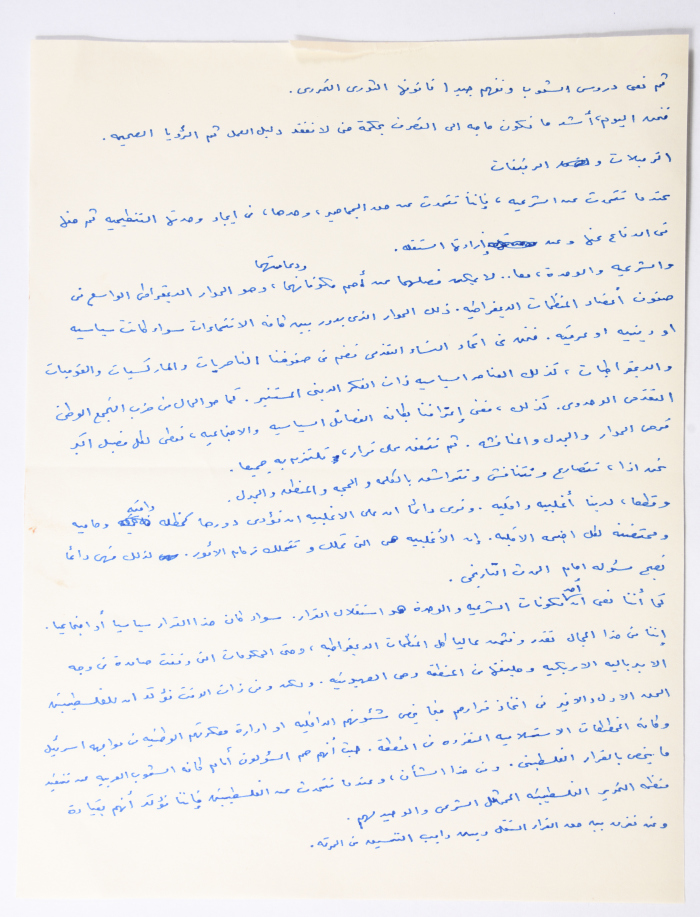 ثم نعي دروس الشعوب ونفهم جيدا قانونها الثوري التحرري.
فنحن اليوم، أشد ما نكون حاجه الى التصرف بحكمة حتى لا نفقد دليل العمل ثم الرؤيا الصحيحه.
الزميلات و الرفيقات
عندما نتحدث عن الشرعيه، فإننا نتحدث عن حق الجماهير، وحدها، في ايجاد وحدتها التنظيميه ثم حقها
في الدفاع عنها وعن إرادتها المستقله.
والشرعيه والوحدة، معا.. لا يمكن فصلهما عن أهم مكوناتهما ودعامتهما، وهو الحوار الديمقراطي الواسع في
صفوف أعضاء المنظمات الديمقراطيه. ذلك الحوار الذي يدور بين كافه الانتماءات سواء كانت سياسيه
او دينيه او عرقيه. فنحن في اتحاد النساء التقدمي نضم في صفوفنا الناصريات والماركسيات والقوميات
والديمقراطيات، كذلك العناصر السياسيه ذات الفكر الديني المستنير. كما هو الحال في حزب التجمع الوطني
التقدمي الوحدوي. كذلك، فنحن بإعترافنا بكافة الفصائل السياسيه والاجتماعيه، نعطي لكل فصيل اكبر
فرص الحوار والجدل والمناقشه. ثم نتفق على قرار، نلتزم به جميعا.
نحن اذا، نتصارع ونتناقش ونتراشد بالكلمه والحجه والمنطق والجدل.
وقطعا، لدينا أغلبيه واقليه. ونرى دائما ان على الاغلبيه ان تؤدي دورها كمظله واقيه وحاميه
ومحتضنة لكل اجنحه الاقليه. إن الأغلبيه هي التي تملك و تتملك زمام الأمور. لذلك فهي دائما
تصبح مسئوله امام الحدث التاريخي.
كما أننا نعي ان أحد مكونات الشرعيه والوحدة هو استقلال القرار. سواء كان هذا القرار سياسيا أو اجتماعيا.
إننا في هذا المجال نقدر ونثمن عاليا كل المنظمات الديمقراطيه، وحتى الحكومات التي وقفت صامدة في وجه
الامبرياليه الامريكيه وحليفتها في المنطقة وهي الصهيونيه. ولكن وفي ذات الوقت نؤكد ان للفلسطينيين
الحق الاول والاخير في اتخاذ قرارهم فيما يخص شئونهم الداخليه او ادارة معركتهم الوطنيه في مواجهه اسرائيل
وكافة المخططات الاستسلاميه المنفرده في المنطقة. حيث أنهم هم المسؤولون أمام كافه الشعوب العربيه عن تنفيذ
ما يختص بالقرار الفلسطيني. وفي هذا الشأن، وعندما نتحدث عن الفلسطينيين فإننا نؤكد أنهم بقيادة
منظمه التحرير الفلسطينيه الممثل الشرعي والوحيد لهم.
ونحن نفرق بين حق القرار المستقل وبين واجب التنسيق في المعركه.